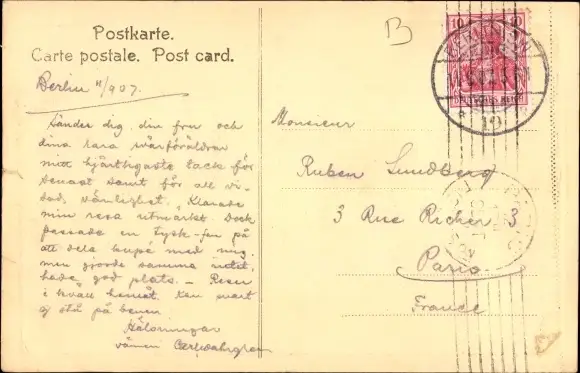 Postkarte.
Carte postale. Post card.
B
10 10
DEUTSCHES REICH
Berlin 11/9 07.
Sänder dig, din fru och
dina kära svärföräldrar
mitt hjärtligaste tack för
senast samt för all vi-
sad vänlighet. Klarade
min resa utmärkt. Dock
passade en tysk på
att dela kupé med mig
men gjorde samma
hade god plats. – Reser
i kväll hemåt. Kan snart
ej stå på benen.
Hälsningar
vännen Carl Wahlgren
Monsieur
Ruben Lundberg
3 Rue Richer 3
Paris
France